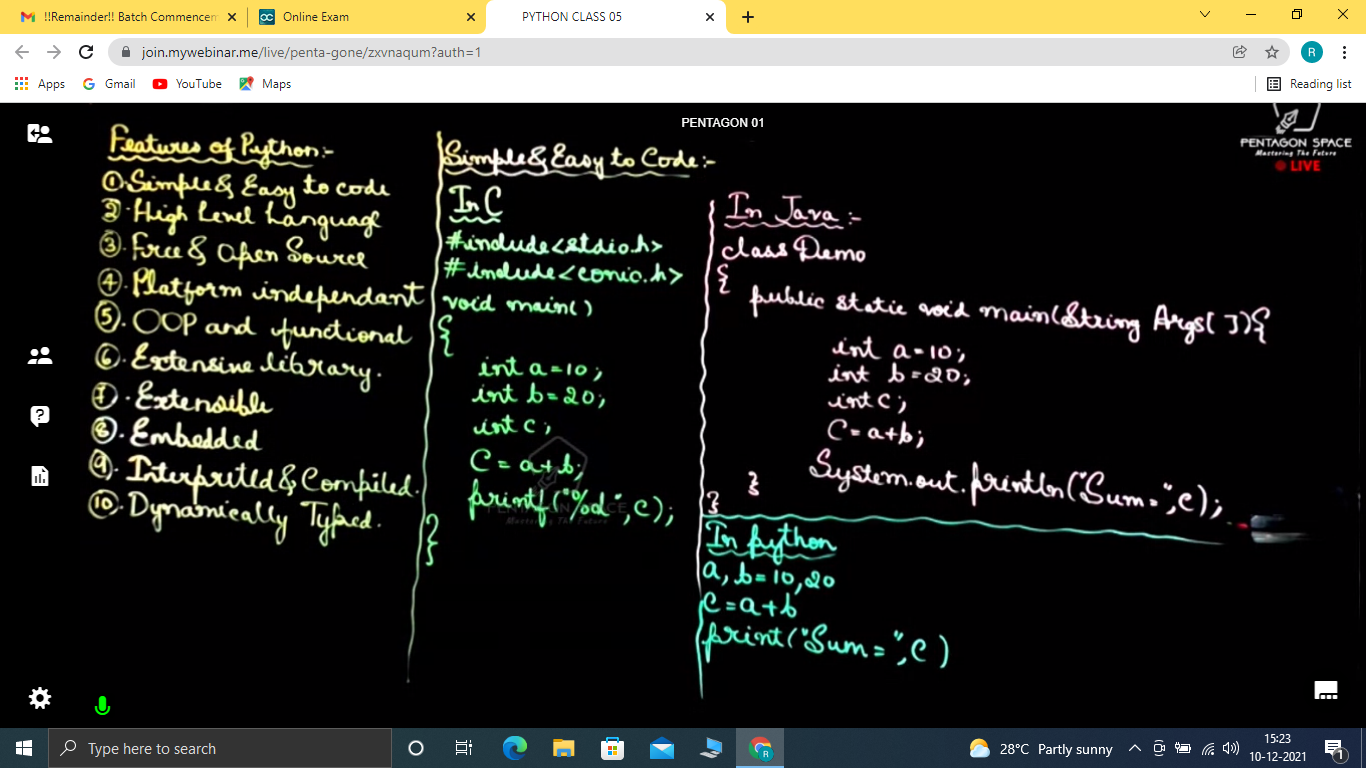 !!Remainder!! Batch Commencem
Online Exam
PYTHON CLASS 05
join.mywebinar.me/live/penta-gone/zxvnaqum?auth=1
R
Apps
Gmail
YouTube
Maps
Reading list
PENTAGON 01
PENTAGON SPACE
Mastering The Future
LIVE
Features of Python:-
①.Simple & Easy to code
②.High Level Language
③.Free & Open Source
④.Platform independant
⑤.OOP and functional
⑥.Extensive library.
⑦.Extensible
⑧.Embedded
⑨.Interpreted & Compiled.
⑩.Dynamically Typed.
Simple & Easy to Code:-
In C
#include<stdio.h>
#include<conio.h>
void main()
{
int a=10;
int b=20;
int c;
C=a+b;
printf("%d",C);
}
PENTAGON SPACE
Mastering The Future
In Java:-
class Demo
{
public static void main(String Args[]){
int a=10;
int b=20;
int c;
C=a+b;
System.out.println("Sum=",C);
}
}
In python
a,b=10,20
C=a+b
print("Sum=",C)
Type here to search
R
28°C Partly sunny
15:23
10-12-2021
1